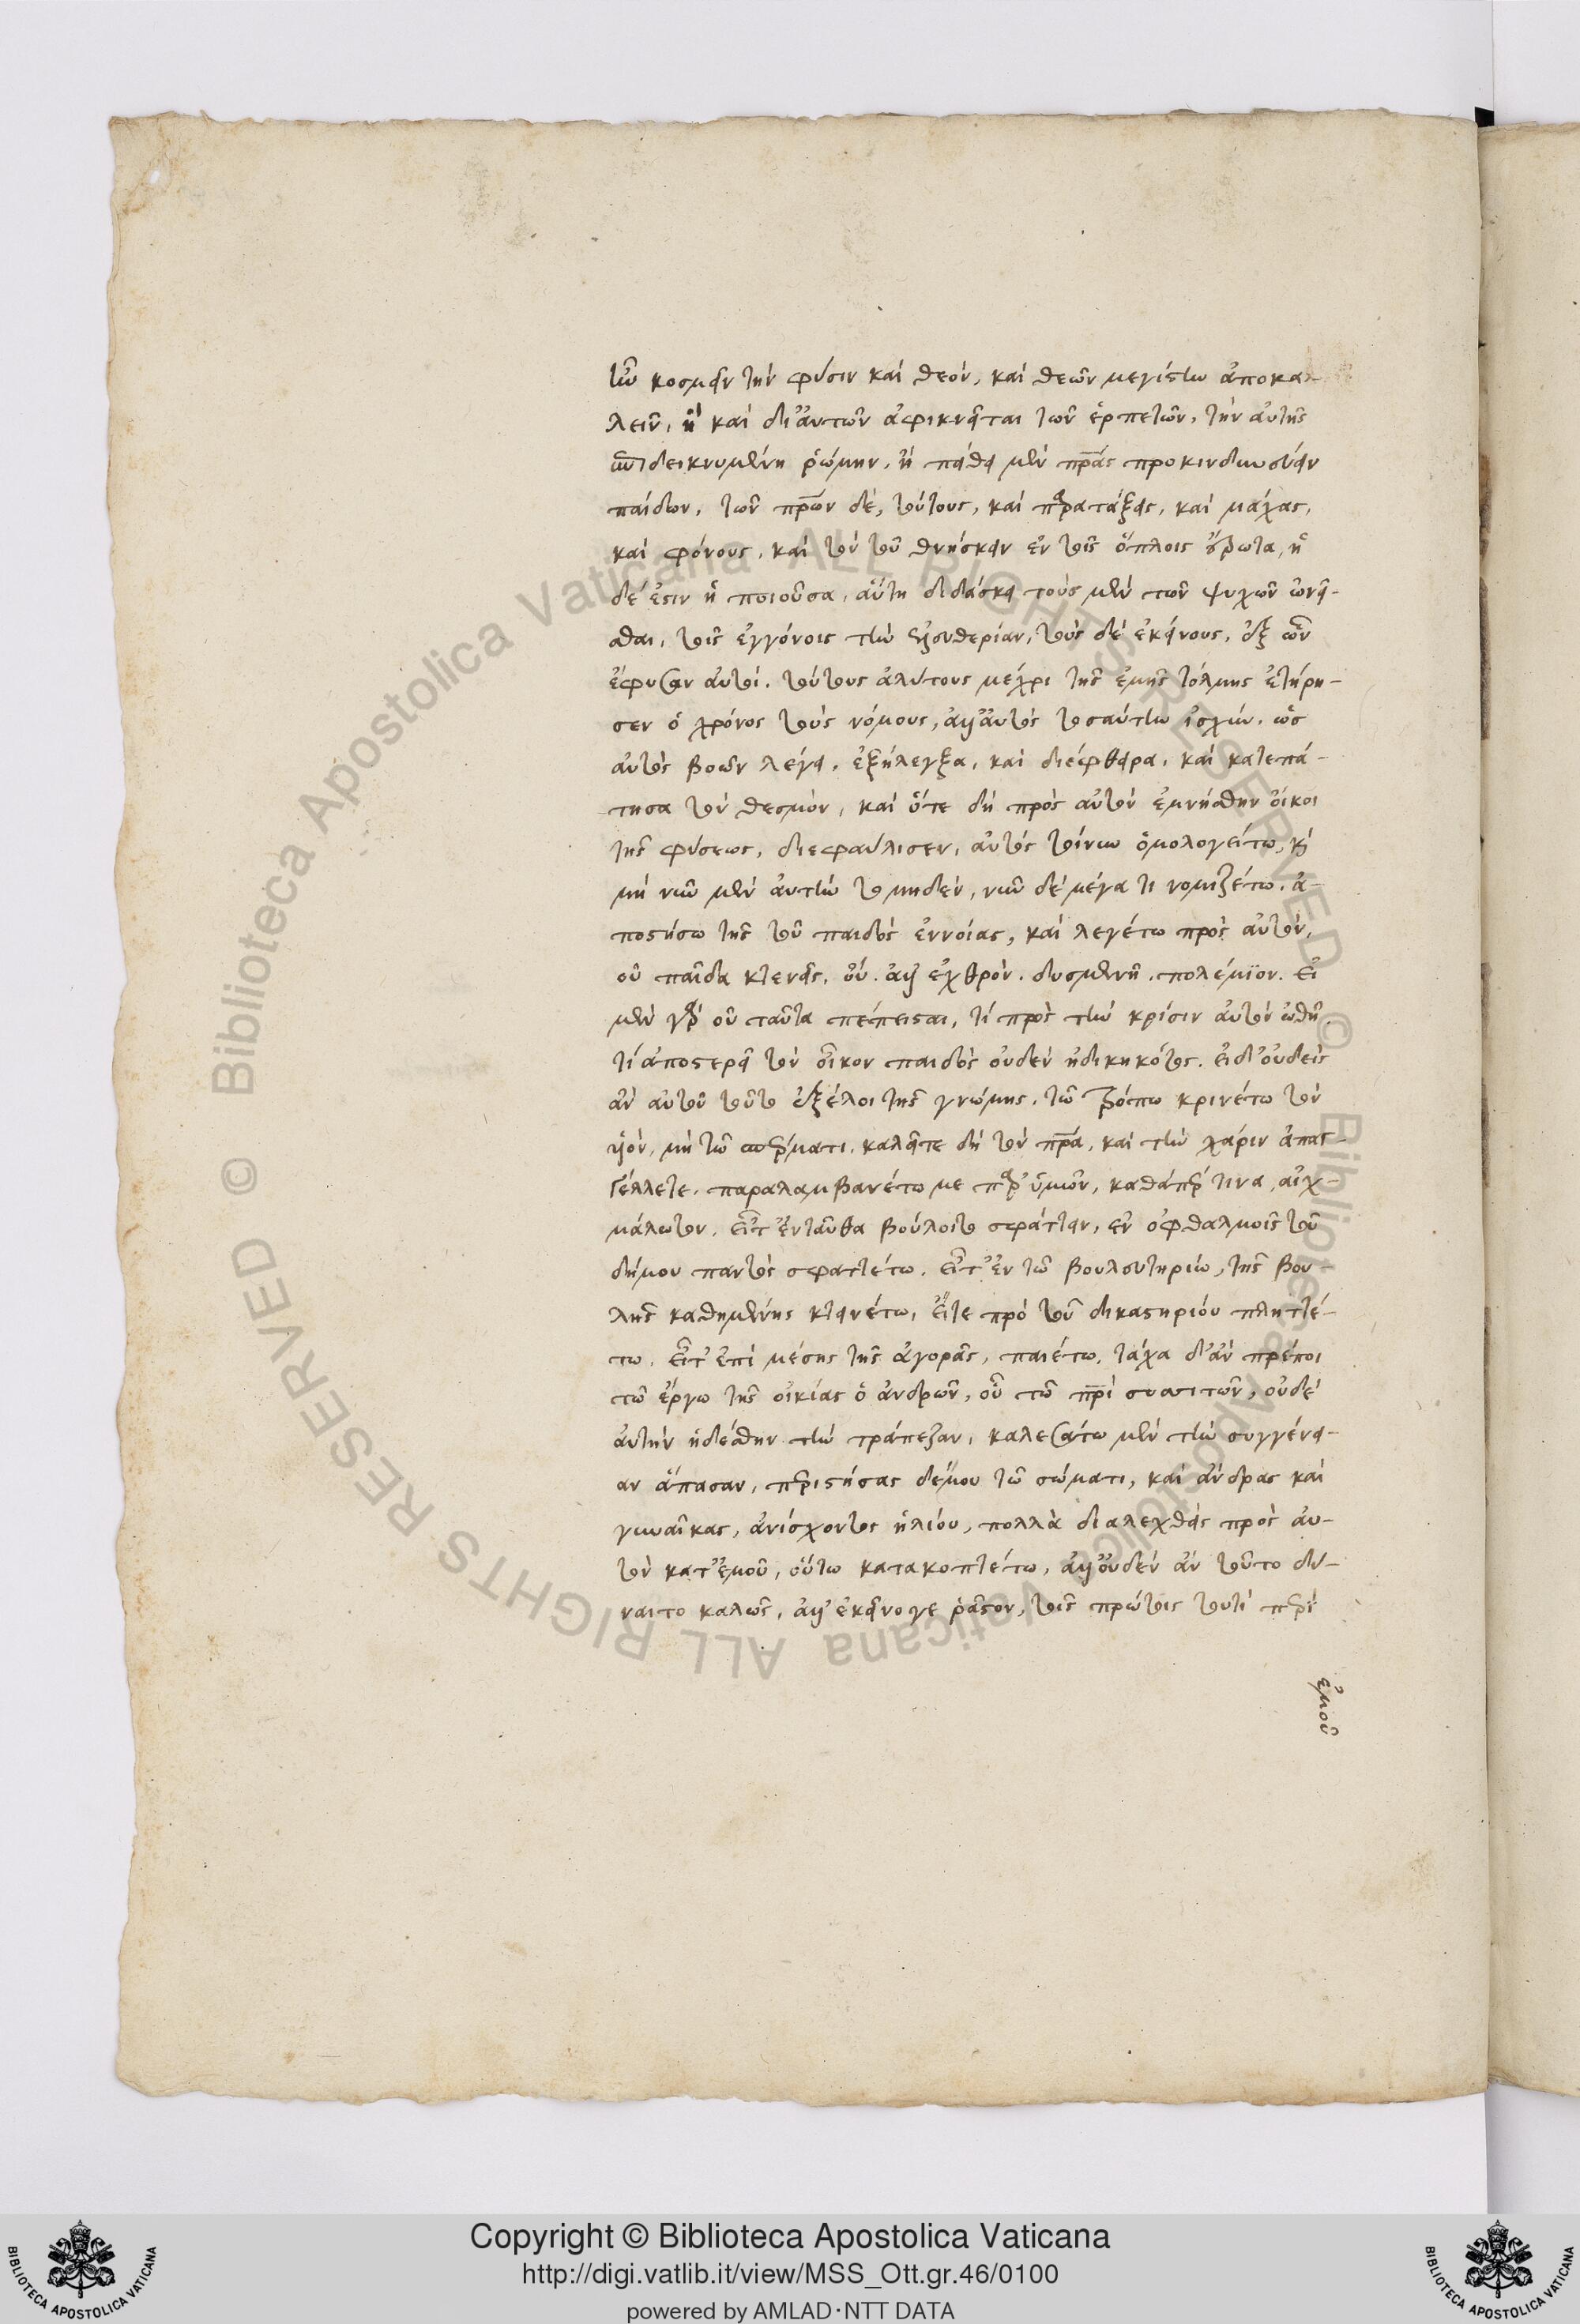 τῶν κοσμεῖν τὴν φύσιν καὶ θεὸν, καὶ θεῶν μεγίστων ἀποκα-
λεῖν, ἣ καὶ δι' αὐτῶν ἀφικνεῖται τῶν ἑρπετῶν, τὴν αὑτῆς
δεικνυμένη ῥώμην, ἣ πείθει μὲν πρας προκινδυνεύειν
παίδων, τῶν πρων δὲ, τούτους, καὶ παρατάξεις, καὶ μάχας,
καὶ φόνους, καὶ τὸν τοῦ θνήσκειν ἐν τοῖς ὅπλοις ἔρωτα, ἡ
δέ ἐστιν ἡ ποιοῦσα, αὕτη διδάσκει τοὺς μὲν τῶν ψυχῶν ὠνεῖ-
σθαι, τοῖς ἐγγόνοις τὴν ἐλευθερίαν, τοὺς δὲ ἐκείνους, ἐξ ὧν
ἔφυσαν αὐτοὶ. τούτους ἀλύτους μέχρι τῆς ἐμῆς τόλμης ἐτήρη-
σεν ὁ χρόνος τοὺς νόμους, ἀλλ' αὐτὸς τοσαύτην ἰσχὺν, ὡς
αὐτὸς βοῶν λέγει, ἐξήλεγξα, καὶ διέφθειρα, καὶ κατεπά-
τησα τὸν θεσμὸν, καὶ ὅτε δὴ πρὸς αὐτὸν ἐμνήσθην οἴκοι
τῆς φύσεως, διεφαύλισεν, αὐτὸς τοίνυν ὁμολογείτω, καὶ
μὴ νῦν μὲν αὐτὴν τὸ μηδὲν, νῦν δὲ μέγα τι νομιζέτω. ἀ-
ποστήσω τῆς τοῦ παιδὸς ἐννοίας, καὶ λεγέτω πρὸς αὐτὸν,
οὐ παῖδα κτενεῖς, οὔ. ἀλλ' ἐχθρὸν. δυσμενῆ. πολέμιον. εἰ
μὲν γὰρ οὐ ταῦτα πέπεισαι, τί πρὸς τὴν κρίσιν αὐτὸν ὠθεῖ.
τί ἀποστερεῖ τὸν οἶκον παιδὸς οὐδὲν ἠδικηκότος. εἰ δ' οὐδεὶς
ἂν αὐτοῦ τοῦτο ἐξέλοι τῆς γνώμης, τῷ τρόπῳ κρινέτω τὸν
υἱὸν, μὴ τῷ σπέρματι. καλεῖτε δὴ τὸν πρα, καὶ τὴν χάριν ἀπαγ-
γέλλετε. παραλαμβανέτω με παρ' ὑμῶν, καθάπερ τινα αἰχ-
μάλωτον. εἴτ' ἐνταῦθα βούλοιτο σφάττειν, ἐν ὀφθαλμοῖς τοῦ
δήμου παντὸς σφαττέτω. εἴτ' ἐν τῷ βουλευτηρίῳ, τῆς βου-
λῆς καθημένης κτεινέτω, εἴτε πρὸ τοῦ δικαστηρίου πληττέ-
τω. εἴτ' ἐπὶ μέσης τῆς ἀγορᾶς, παιέτω. τάχα δ' ἂν πρέποι
τῷ ἔργῳ τῆς οἰκίας ὁ ἀνδρῶν, οὗ τῷ πρὶ συσσιτῶν, οὐδὲ
αὐτὴν ᾐδέσθην τὴν τράπεζαν, καλεσάτω μὲν τὴν συγγένει-
αν ἅπασαν, περιστήσας δέ μου τῷ σώματι, καὶ ἄνδρας καὶ
γυναῖκας, ἀνίσχοντος ἡλίου, πολλὰ διαλεχθεὶς πρὸς αὐ-
τὸν κατ' ἐμοῦ, οὕτω κατακοπτέτω, ἀλλ' οὐδὲν ἂν τοῦτο δύ-
ναιτο καλῶς, ἀλλ' ἐκεῖνο γε ῥᾷστον, τοῖς πρώτοις τουτὶ περὶ
ἐμοῦ
Copyright © Biblioteca Apostolica Vaticana
http://digi.vatlib.it/view/MSS_Ott.gr.46/0100
powered by AMLAD·NTT DATA
BIBLIOTECA APOSTOLICA VATICANA
BIBLIOTECA APOSTOLICA VATICANA
© Biblioteca Apostolica Vaticana ALL RIGHTS RESERVED
© Biblioteca Apostolica Vaticana ALL RIGHTS RESERVED